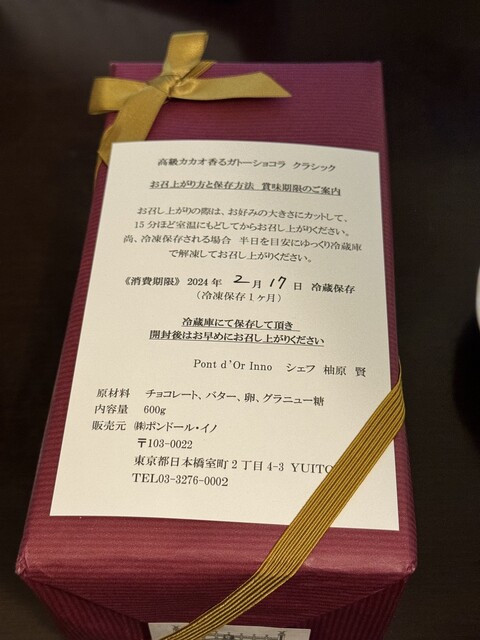 高級カカオ香るガトーショコラ クラシック
お召上がり方と保存方法 賞味期限のご案内
お召し上がりの際は、お好みの大きさにカットして、
15分ほど室温にもどしてからお召し上がりください。
尚、冷凍保存される場合 半日を目安にゆっくり冷蔵庫
で解凍してお召し上がりください。
《消費期限》 2024年 2月 17日 冷蔵保存
(冷凍保存1ヶ月)
冷蔵庫にて保存して頂き
開封後はお早めにお召し上がりください
Pont d'Or Inno シェフ 柚原 賢
原材料 チョコレート、バター、卵、グラニュー糖
内容量 600g
販売元 ㈱ポンドール・イノ
〒103-0022
東京都日本橋室町2丁目4-3 YUITO
TEL03-3276-0002